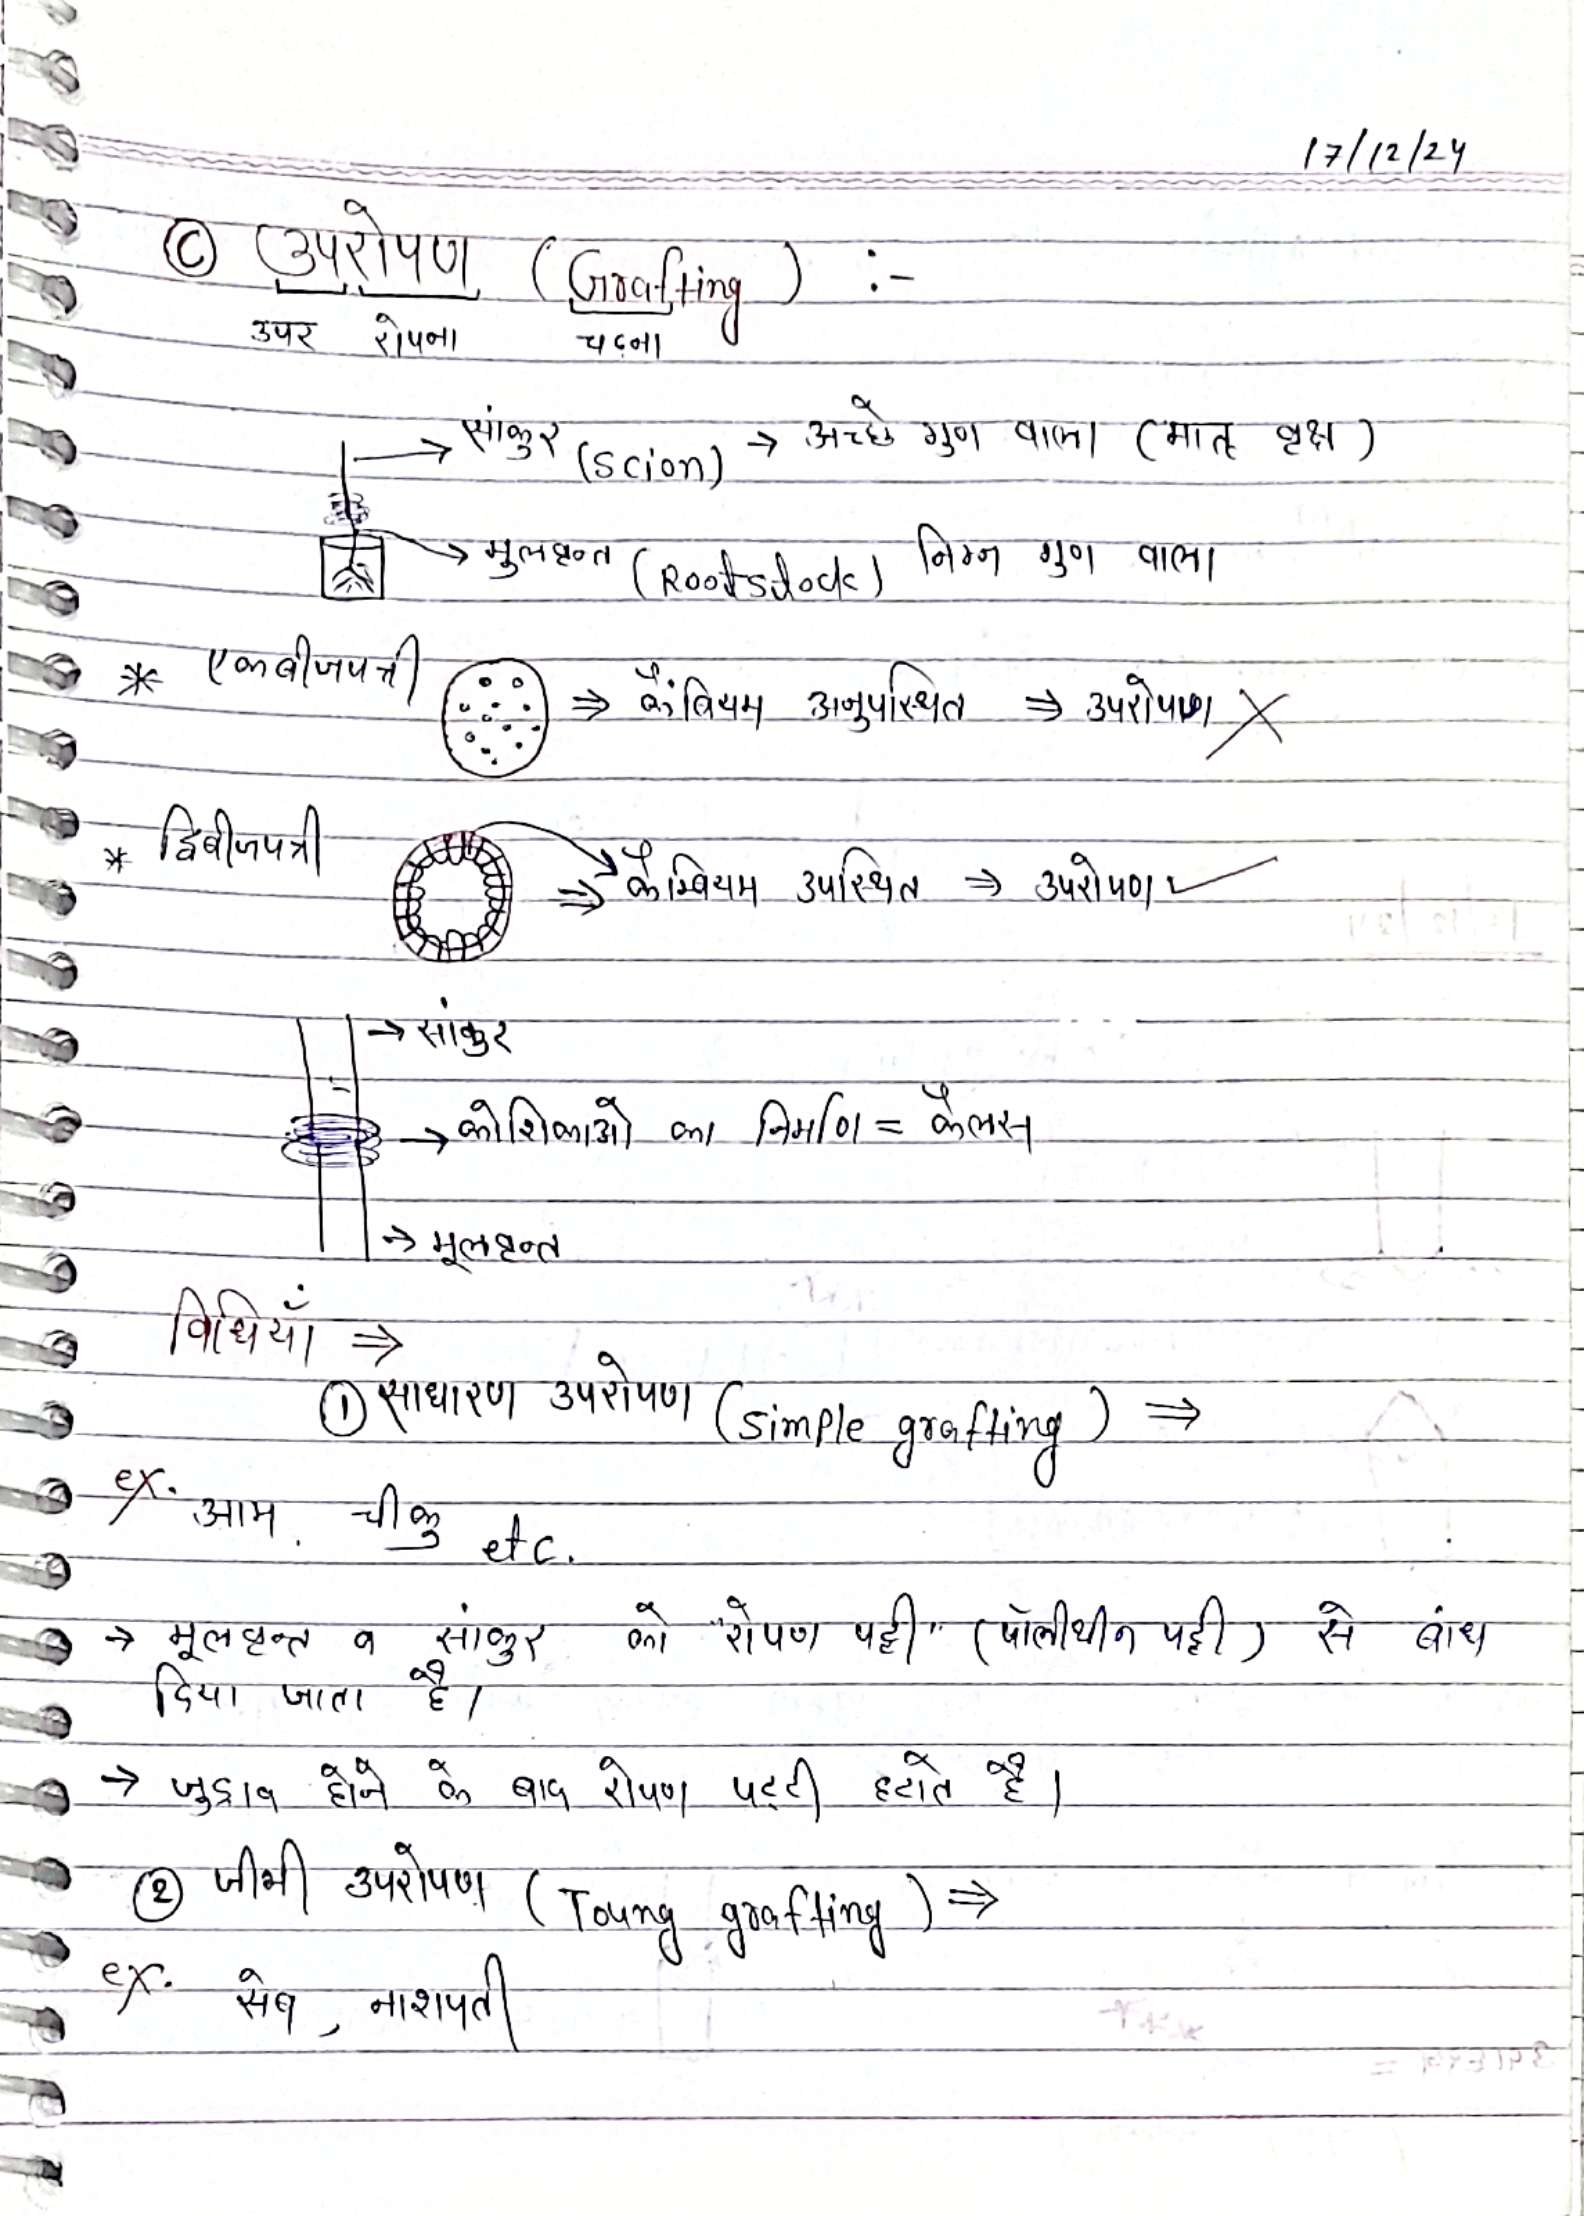 17/12/24
(C) उपरोपण (Grafting) :-
उपर रोपना चढ़ना
→ सांकुर (Scion) → अच्छे गुण वाला (मातृ वृक्ष)
→ मुलवृन्त (Rootstock) निम्न गुण वाला
* एकबीजपत्री ⇒ कैंबियम अनुपस्थित ⇒ उपरोपण ✗
* द्विबीजपत्री ⇒ कैम्बियम उपस्थित ⇒ उपरोपण ✓
→ सांकुर
→ कोशिकाओं का निर्माण = कैलस
→ मूलवृन्त
विधियाँ ⇒
① साधारण उपरोपण (Simple grafting) ⇒
ex. आम, चीकु etc.
→ मूलवृन्त व सांकुर को "रोपण पट्टी" (पॉलीथीन पट्टी) से बांध
दिया जाता है।
→ जुड़ाव होने के बाद रोपण पट्टी हटाते है।
② जीभी उपरोपण (Toung grafting) ⇒
ex. सेब, नाशपती